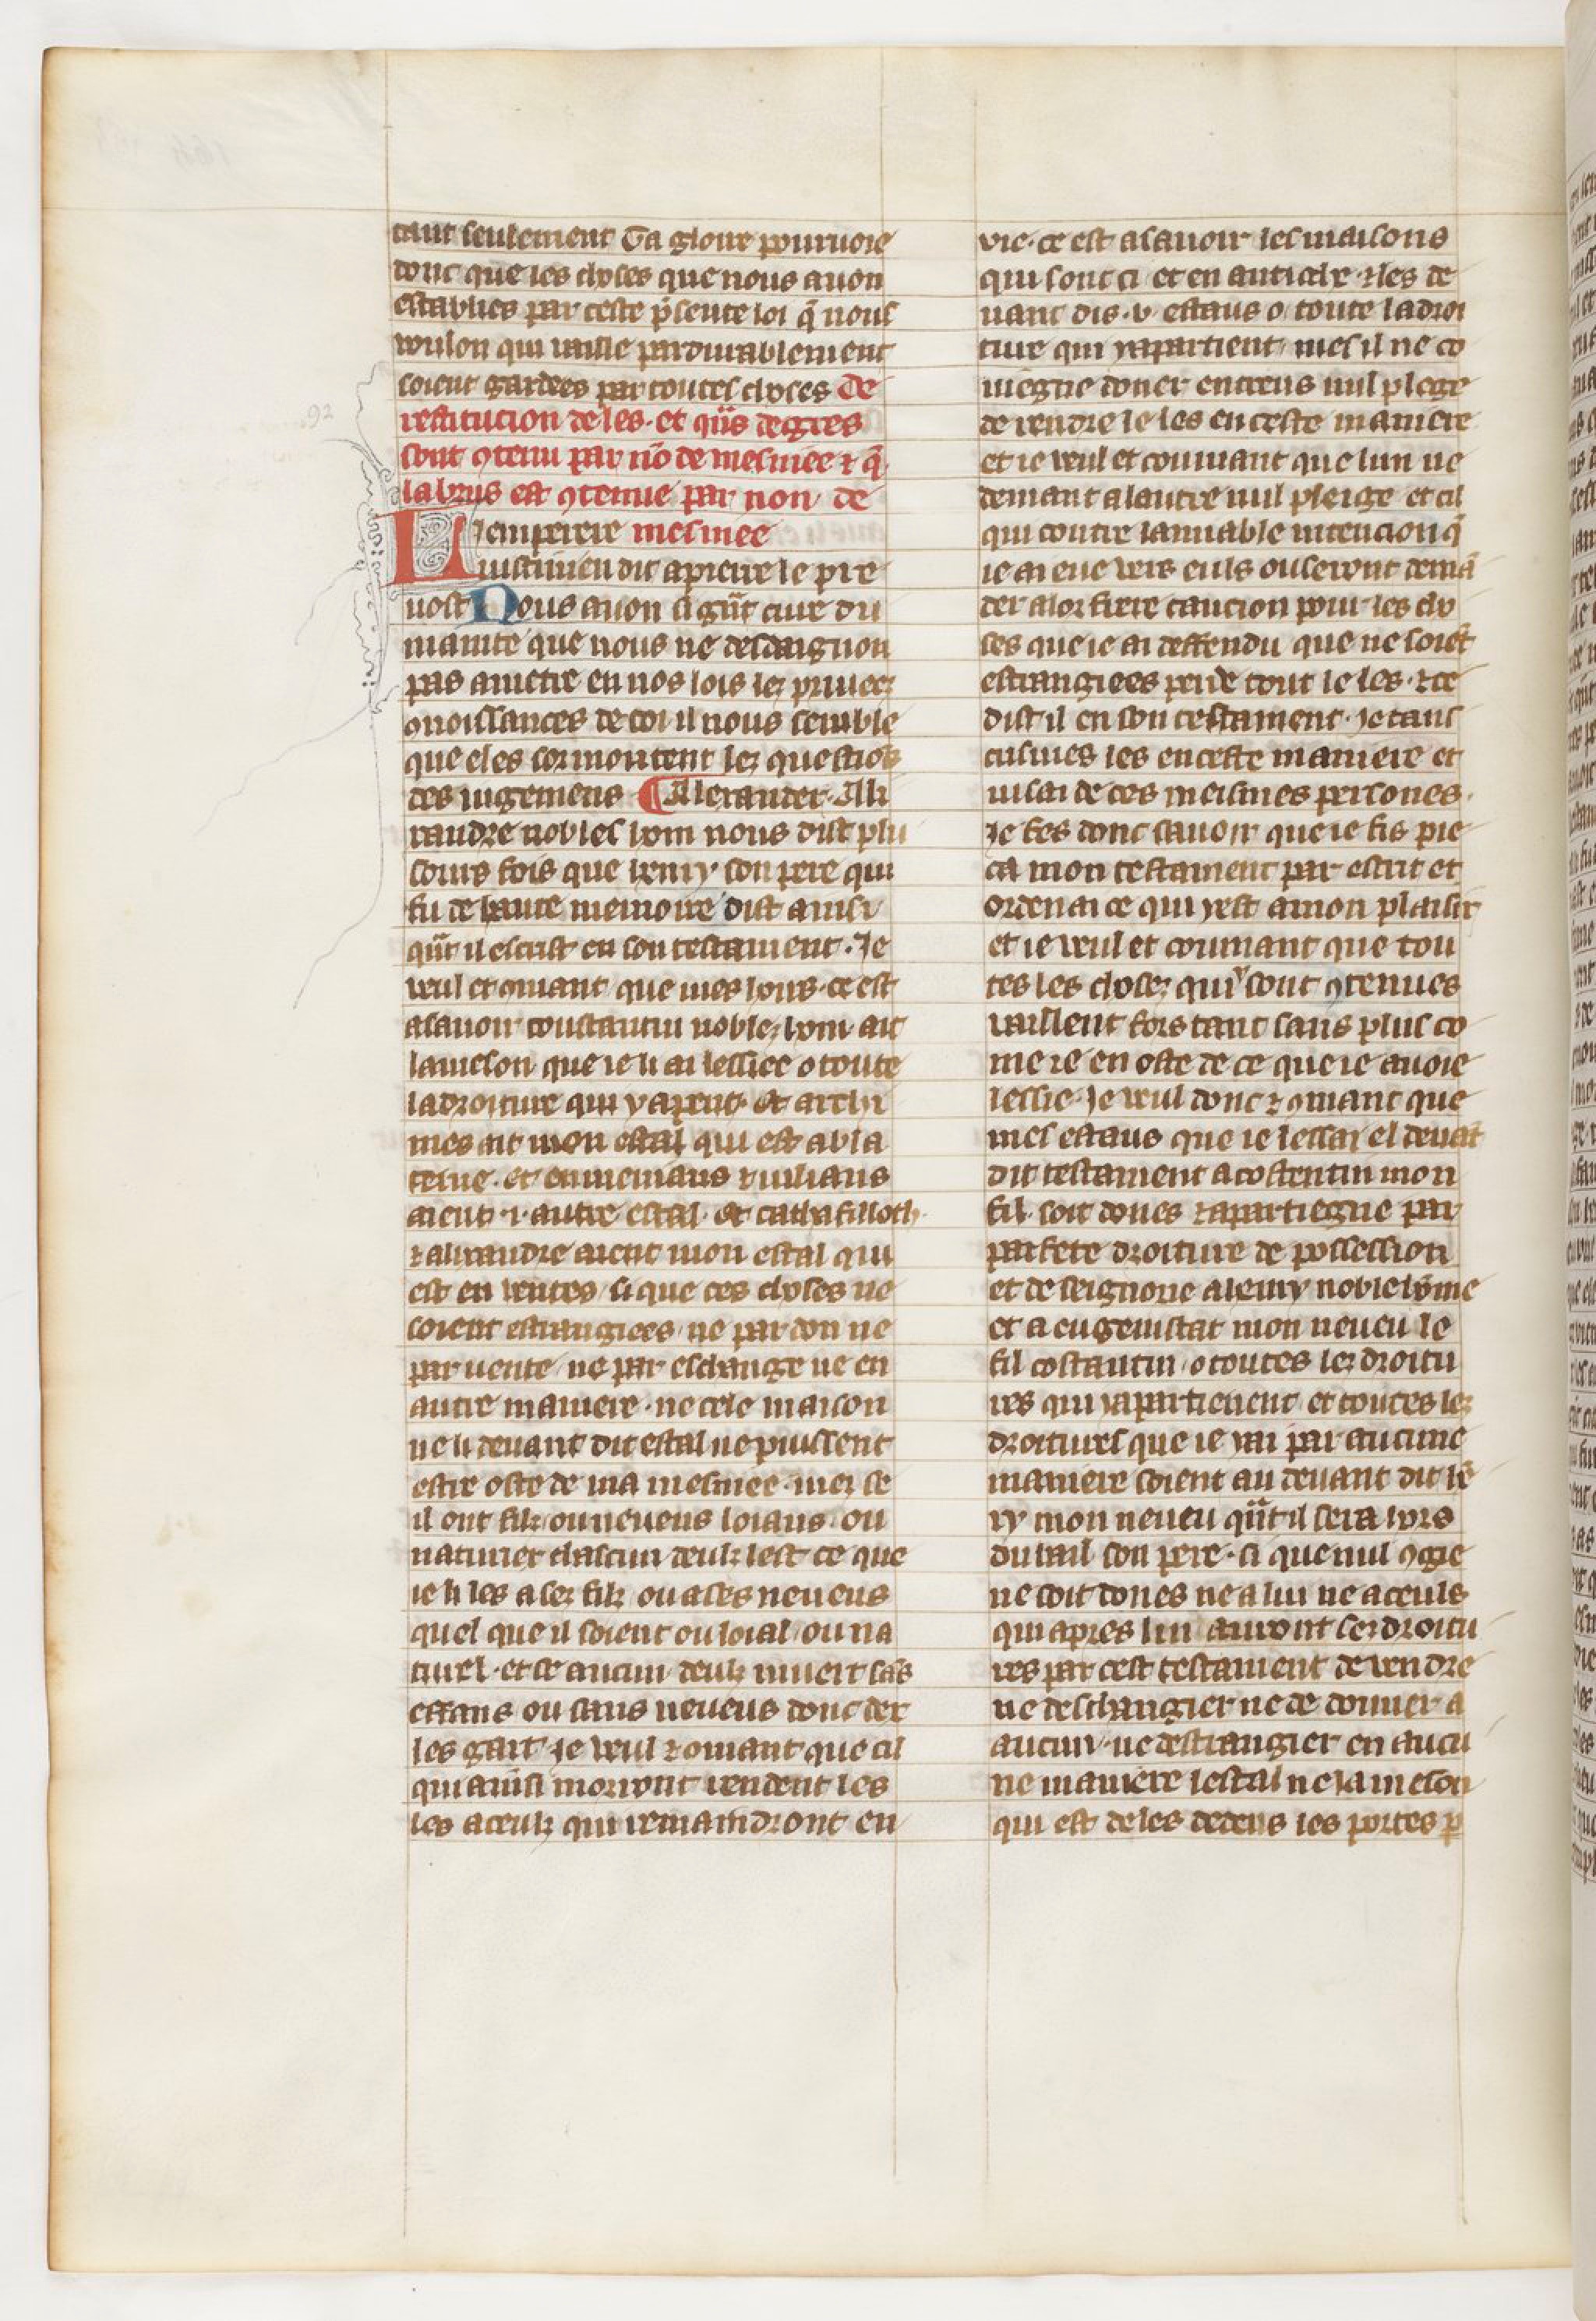 tant seulement Ta gloire pourvoie
donc que les choses que nous avon
establies par ceste p̃sente loi q̃ nous
voulon qui vaille pardurablement
soient gardees par toutes choses De
restitucion de les· et qũs degres
sont ꝯtenu par nõ de mesniee ⁊ q̃
la brus est ꝯtenue par non de
Lemperere mesniee
iustinien dit a pierre le pre
vost Nous avon si grãt cure du
manité que nous ne desdaignon
pas a metre en nos lois lez privees
ꝯnoissances de coi il nous semble
que eles sormontent lez questiõs
des iugemens ¶ Alexander· Alix
andre nobles hom nous dist plu
sours fois que henry son pere qui
fu de haute memoire dist ainsi
qũt il escrist en son testament· Je
veul et ꝯmant que mes hoirs· ce est
asavoir constantin noblez hom ait
la meson que ie li ai lessiee o toute
la droiture qui y apent· et arthi
mes ait mon estal qui est abla
terne· et enmemaus ⁊ iulians
aient· ⁊· autre estal· et cathafilloth·
⁊ alixandre aient mon estal qui
est en ventes si que ces choses ne
soient estrangiees ne par don ne
par vente ne par eschange ne en
autre maniere· ne cele maison
ne li devant dit estal ne puissent
estre osté de ma mesniee· mez se
il ont filz ou neveus loiaus· ou
naturiex chascun deulz lest ce que
ie li les a sez filz ou a ses neveus
quel que il soient ou loial ou na
turel· et se aucun deulz muert sãs
enfans ou sans neveus donc dex
les gart· je veul ⁊ ꝯmant que cil
qui ainsi morront rendent les
les a ceulz qui remaindront en
vie· ce est asavoir les maisons
qui sont ci et en anticele· ⁊ les de
vant dis· v· estaus o toute la droi
ture qui y apartient mes il ne co
viegne doner entreus nul plege
de rendre le les en ceste maniere
et ie veul et conmant que lun ne
demant a lautre nul pleige et cil
qui contre lamiable intencion q̃
ie ai eue vers euls ouseront demã
der a lor frere caucion pour les cho
ses que ie ai deffendu que ne soiẽt
estrangiees perde tout le les· ⁊ ce
dist il en son testament· Je tans
cusmes les en ceste maniere et
iusai de ces meismes persones·
Je fes donc savoir que ie fis pie
ca mon testament par escrit et
ordenai ce qui y est a mon plaisir
et ie veul et conmant que tou
tes les chosez qui y sont ꝯtenues
vaillent fors tant sans plus co
me ie en oste de ce que ie avoie
lessie· Je veul donc ⁊ ꝯmant que
mes estaus que ie lessai el devãt
dit testament a costentin mon
fil· soit donés ⁊ apartiegne par
parfete droiture de possession
et de seignorie a henry noble hõme
et a eugenistat mon neveu le
fil costantin o toutes lez droitu
res qui y apartienent et toutes lez
droitures que ie y ai par aucune
maniere soient au devant dit hẽ
ry mon neveu qũt il sera hors
du bail son pere· si que nul ꝯgie
ne soit donés ne a lui ne a ceuls
qui apres lui auront ses droitu
res par cest testament de vendre
ne deschangier ne de donner a
aucun· ne destrangier en aucu
ne maniere lestal ne la meson
qui est de les dedens les portes p̱